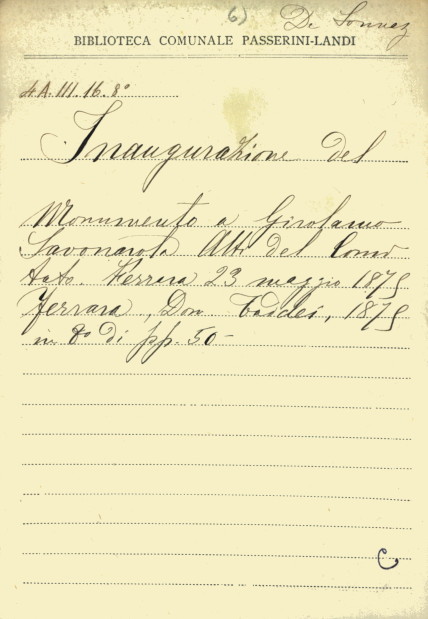 6) De Sonnaz
BIBLIOTECA COMUNALE PASSERINI-LANDI
4A.III.16.8°
Inaugurazione del
Monumento a Girolamo
Savonarola Atti del Comi
tato. Ferrara 23 maggio 1875
Ferrara, Dom Taddei, 1875
in 8° di pp. 50
C